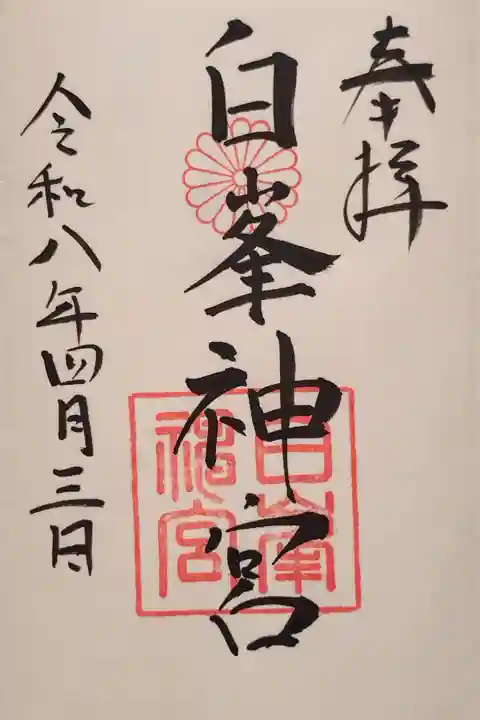 奉拝
白峯神宮
白峯
神宮
令和八年四月三日